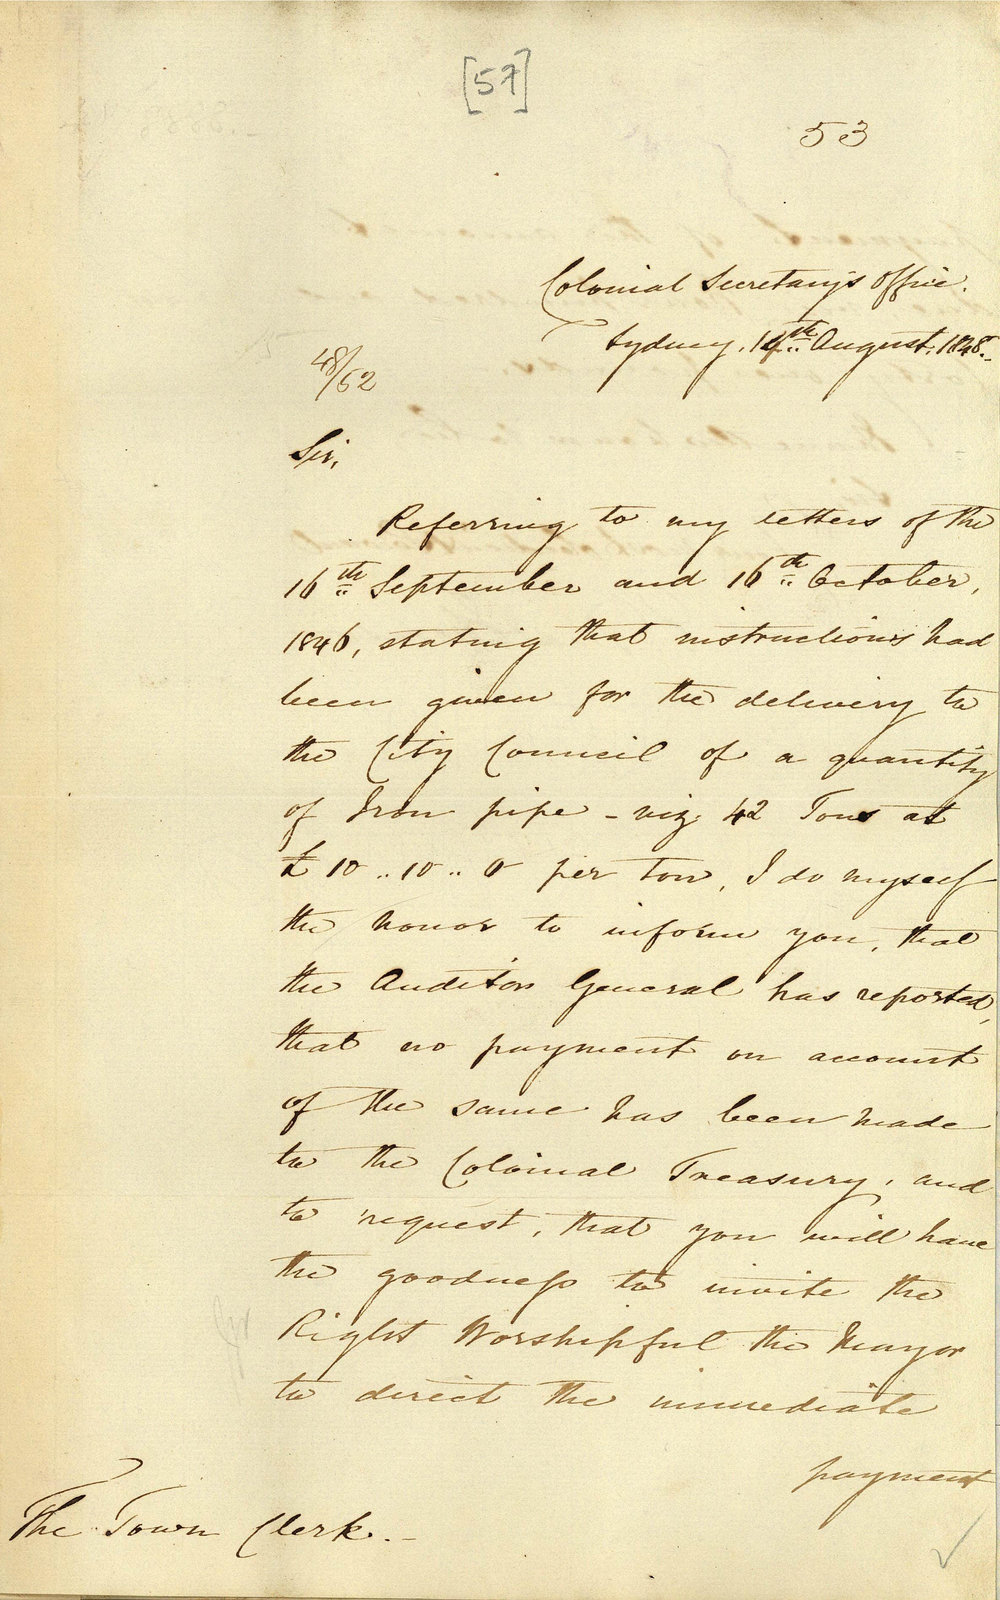 [57]
53
Colonial Secretary's Office.
Sydney, 14th August, 1848.
48/62
Sir,
Referring to my letters of the
16th September and 16th October,
1846, stating that instructions had
been given for the delivery to
the City Council of a quantity
of Iron pipe - viz 42 Tons at
£10..10..0 per ton, I do myself
the honor to inform you, that
the Auditor General has reported,
that no payment on account
of the same has been made
to the Colonial Treasury, and
to request, that you will have
the goodness to invite the
Right Worshipful the Mayor
to direct the immediate
payment
The Town Clerk. -